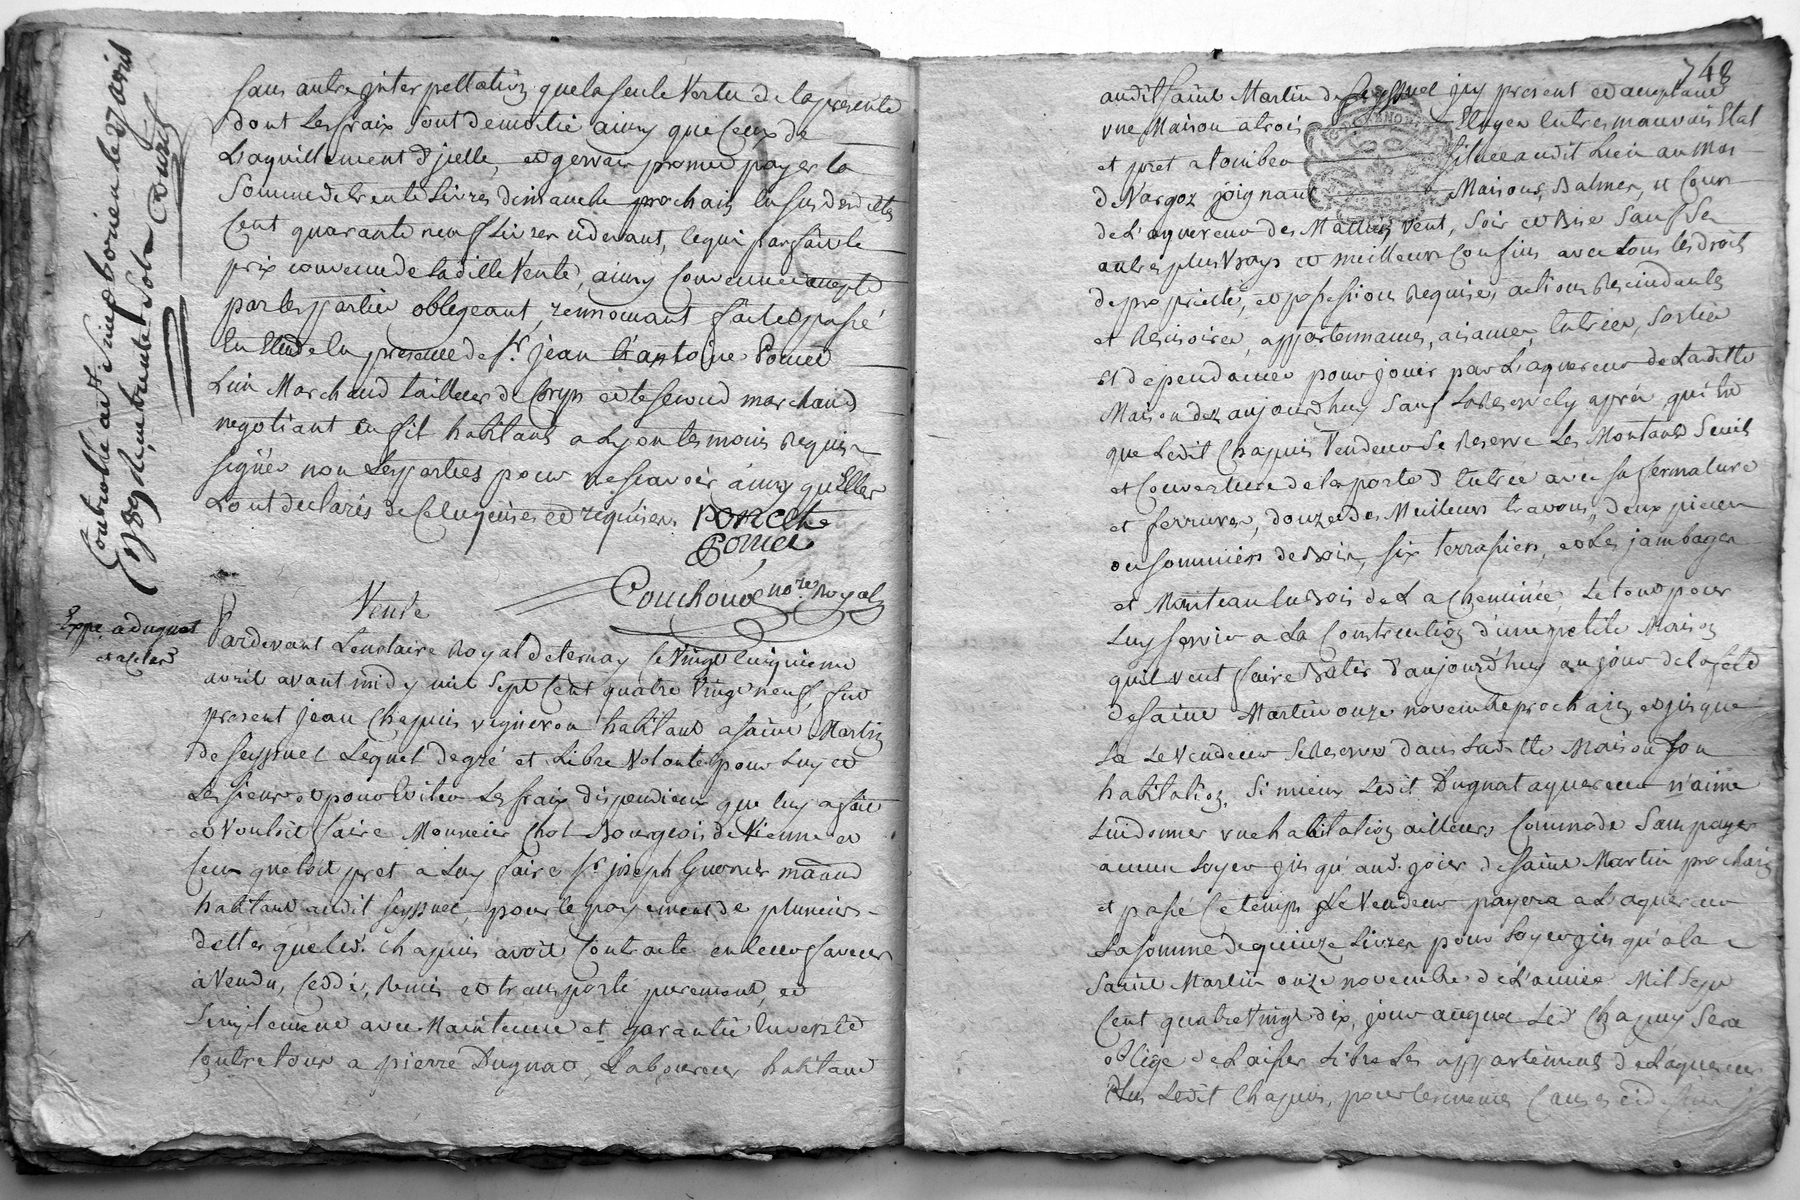 Controllé à St Simphorien le 27 avril
1789
sans autre interpellation que la seule vertu de la présente
dont les fraix sont de moitié ainsy que ceux de
l'aquittement d'jcelle, et gervais promet payer la
somme de trente livres dimanche prochain en sus desdettes
cent quarante neuf livres cidevant, ce qui parfait le
prix convenu de ladille vente, ainsy convenu accepté
par les parties obligeant, rennoncant fait et passé
en Etude en presence de sr. jean et antoine Poncet
l'un Marchand tailleur de Corps et le second marchand
negotiant en fil habitants a Lyon temoins requis
signés non les parties pour ne scavoir ainsy qu'Elles
l'ont declarés de ce enquises et requises. Poncet
Poncet
Couchoud nore. Royal
Vente
Expe. a dugnat
Pardevant Le notaire Royal de ternay le vingt cinquieme
avril avant midy mil sept cent quatre vingt neuf, fut
present jean Chapuis vigneron habitant a saint Martin
de seyssuel Lequel de gré et Libre volonté pour Luy et
Les siens et pour Eviter Les fraix dispendieux que luy a fait
et vouloit faire Monsieur Chol Bourgeois de Vienne et
ceux que étoit pret a Luy faire sr. joseph
habitant audit seyssuel pour le payement de plusieurs
dettes que led. Chapuis avoit contracté en leur faveur
à vendu, ceddé, Remis et transporté purement, et
simplement avec Maintenue et garantie Envers et
contre tous a pierre Dugnat, Laboureur habitant
748
audit saint Martin de seyssuel jcy present et acceptant
une Maison a trois Etages en tres mauvais Etat
et pret a tomber située audit Lieu au Mas
de Vargoz joignant Maisons, Balmes, et Cour
de L'aquereur des Matin, vent, soir et Bise sauf ses
autres plus vrays et meilleurs confins avec tous les droits
de proprieté, et possession Requise, actions Rescindantes
et Rescisoires, appartenances, aisances, Entrées, sorties
et dépendances pour jouir par L'aquereur de Ladette
Maison dez aujourdhuy sauf La Reserve cy après, qui est
que Ledit Chapuis vendeur se Reserve Les Montants seuils
et Couverture de la porte d'Entrée avec sa fermature
et ferrures, douze des Meilleurs travons, deux pieces
ou sommiers de Bois, six terrasiers, et Les jambages
et Manteau en Bois de La Cheminée Le tout pour
Luy servir a La Construction d'une petite Maison
qu'il veut faire Batir d'aujourd'huy au jour de la fete
de saint Martin onze novembre prochain, et jusque
La Le vendeur se Reserve dans Ladette Maison son
habitation. Si mieux Ledit Dugnat aquereur n'aime
Lui donner une habitation ailleurs Commode sans payer
aucun Loyer jusqu'aud. jour de saint Martin prochain
et passé ce temps Le Vendeur payera a L'aquereur
La somme de quinze Livres pour Loyer jusqu'a la
saint Martin onze novembre de L'année Mil sept
cent quatre vingt dix, jour auquel Led. Chapuis sera
obligé de Laisser Libre Les appartements de L'aquereur
Plus Ledit Chapuis, pour les memes Causes